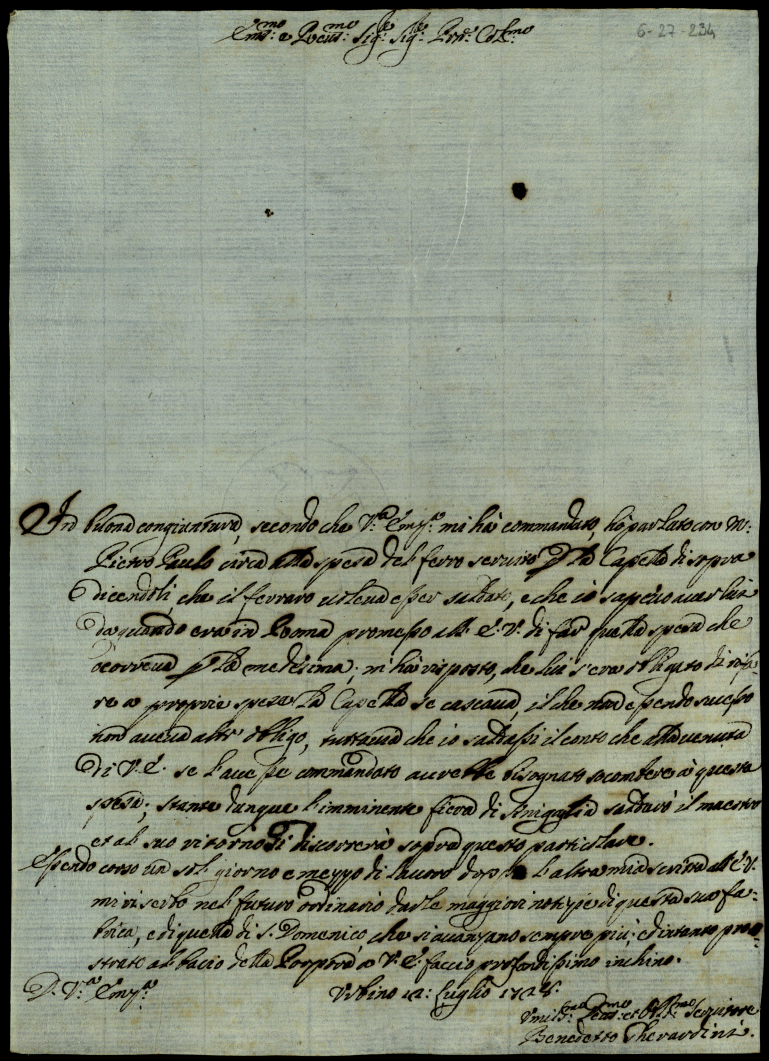 Em.mo e Rev.mo Sig.r Sig.r Pron. Col.mo
6-27-234
In buona congiuntura, secondo che V.ra Em.za mi hà commandato, hò parlato con M.
Pietro Paulo circa alla spesa del ferro servito p la Capella di sopra
dicendoli, che il ferraro voleva esser saldato, e che io sapevo aver lui
da quando era in Roma promesso all' E. V. di far quella spesa che
ocorreva p la medesima; mi hà risposto, che lui s'era obligato di rifa-
re a proprie spese la Capella se cascava, il che non essendo sucesso
non aveva altr' obligo, tuttavia che io saldassi il conto che alla venuta
di V. E. se l'avesse commandato averebbe bisognato socombere à questa
spesa; stante dunque l'imminente fiera di Sinigaglia saldarò il maestro
et al suo ritorno si discorrerà sopra questo particolare.
Essendo corso un sol giorno e mezzo di lavoro dopo l'altra mia scritta all' E. V.
mi riserbo nel futuro ordinario darle maggiori notizie di questa sua fa-
brica, e di quella di S. Domenico, che si avanzano sempre più; ed intanto pro-
strato al bacio della Porpora a V. E. faccio profondissimo inchino.
D. V.ra Em.za
Urbino 12: Luglio 1728.
Umil.mo Dev.mo et Obl.mo Servitore
Benedetto Gherardini.